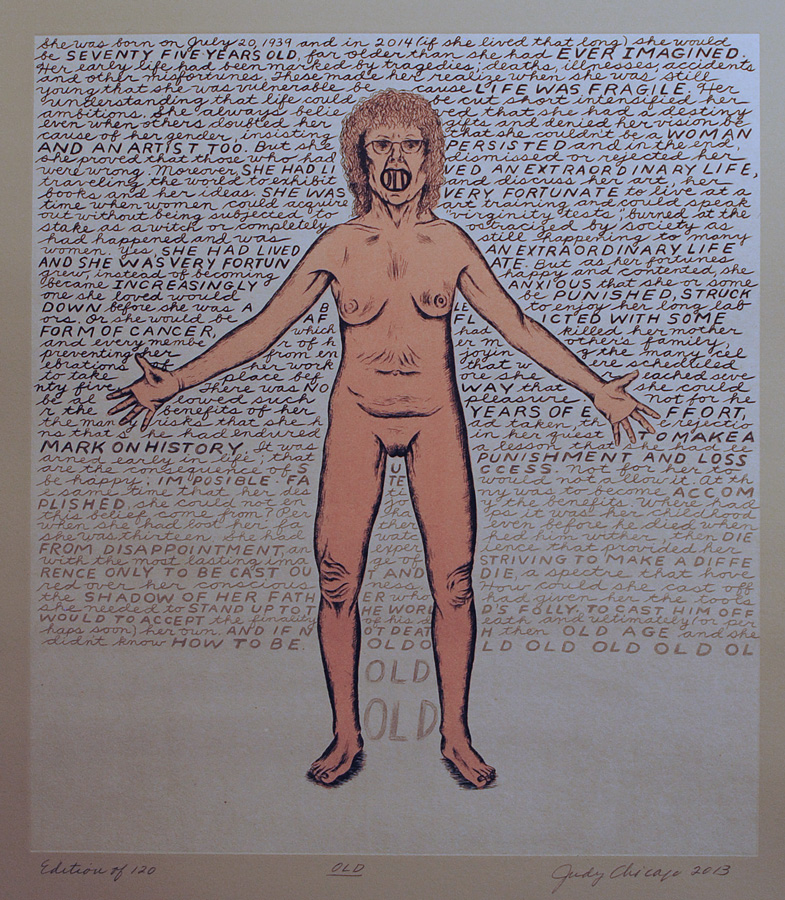 She was born on July 20, 1939 and in 2014 (if she lived that long) she would
be SEVENTY FIVE YEARS OLD, far older than she had EVER IMAGINED.
Her early life had been marked by tragedies; deaths, illnesses, accidents
and other misfortunes. These made her realize when she was still
young that she was vulnerable be cause LIFE WAS FRAGILE. Her
understanding that life could be cut short intensified her
ambitions. She always belie ved that she had a destiny
even when others doubted her gifts and denied her vision be
cause of her gender, insisting that she couldn't be a WOMAN
AND AN ARTIST TOO. But she PERSISTED and in the end,
she proved that those who had dismissed or rejected her
were wrong. Moreover, SHE HAD LI VED AN EXTRAORDINARY LIFE,
traveling the world to exhibit and discuss her art, her
books and her ideas. SHE WAS VERY FORTUNATE to live at a
time when women could acquire art training and could speak
out without being subjected to "virginity tests", burned at the
stake as a witch or completely ostracized by society as
had happened and was still happening to many
women. Yes, SHE HAD LIVED AN EXTRAORDINARY LIFE
AND SHE WAS VERY FORTUN ATE. But as her fortunes
grew, instead of becoming happy and contented, she
became INCREASINGLY ANXIOUS that she or some
one she loved would be PUNISHED, STRUCK
DOWN before she was A B LE to enjoy her long lab
ors. Or she would be AF FL ICTED WITH SOME
FORM OF CANCER, which had killed her mother
and every membe r of h er m other's family,
preventing her from en joyin g the many cel
ebrations of her work that w ere scheduled
to take place bef ore she reached seve
nty five. There was NO WAY that she could
be al lowed such pleasure not for he
r the benefits of her YEARS OF E FFORT,
the many risks that she h ad taken, the rejectio
ns that she had endured in her quest TO MAKE A
MARK ON HISTORY. It was a lesson that she had le
arned early in life; that PUNISHMENT AND LOSS
are the consequence of S U CCESS. Not for her to
be happy; IMPOSIBLE. FA TE would not allow it. At th
e same time that her des ti ny was to become ACCOM
PLISHED, she could not en jo y the benefit. Where had
this belief come from? Per ha ps it was her childhood
when she had lost her fa ther even before he died when
she was thirteen. She had watc hed him wither, then DIE
FROM DISAPPOINTMENT, an exper ience that provided her
with the most lasting ima ge of STRIVING TO MAKE A DIFFE
RENCE ONLY TO BE CAST OU T AND DIE, a spectre that hove
red over her consci ness. How could she cast off
the SHADOW OF HER FATH ER who had given her the tools
she needed to STAND UP TO T HE WORL D'S FOLLY. TO CAST HIM OFF
WOULD TO ACCEPT the finality of his d eath and ultimately (or per
haps soon) her own. AND IF N OT DEAT H then OLD AGE and she
didn't know HOW TO BE. OLD O LD OLD OLD OLD OL
OLD
OLD
OLD
Edition of 120 OLD Judy Chicago 2013